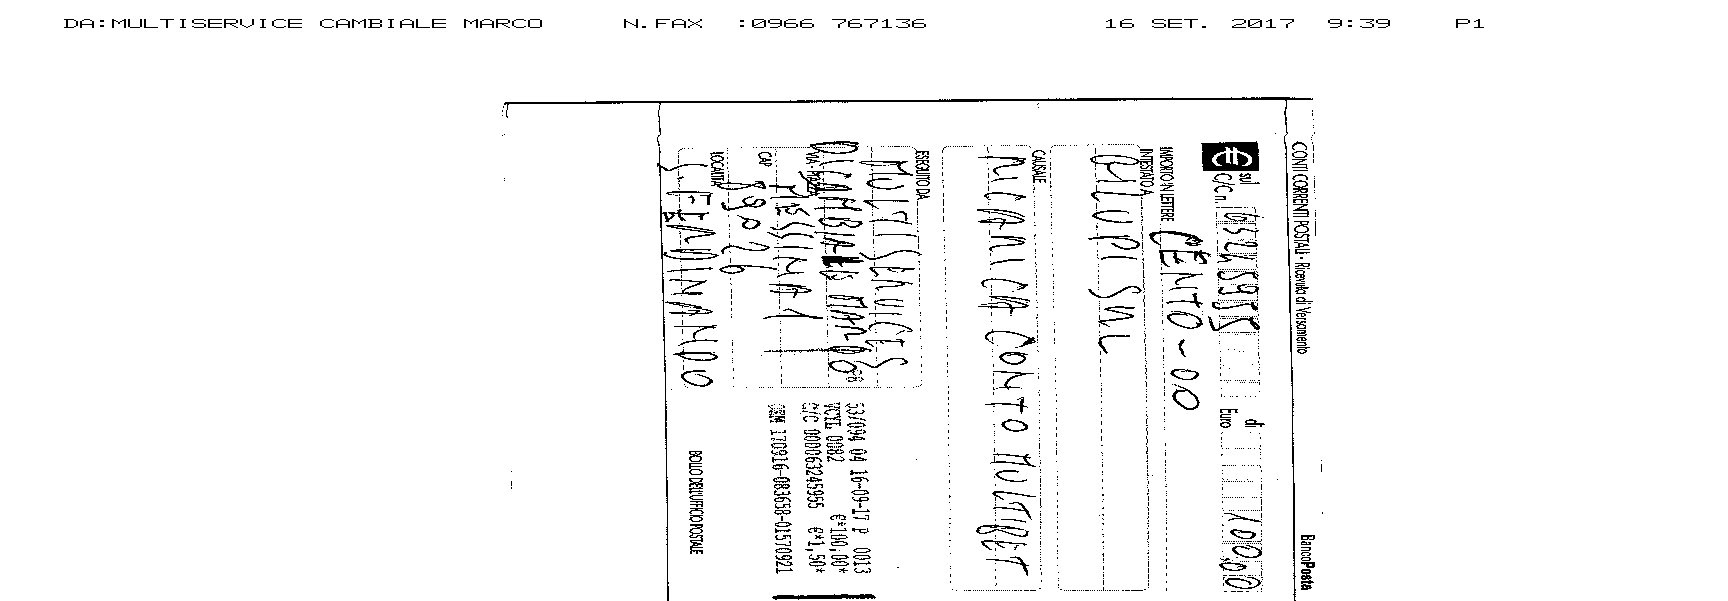 DA:MULTISERVICE CAMBIALE MARCO N.FAX :0966 767136 16 SET. 2017 9:39 P1
CONTI CORRENTI POSTALI - Ricevuta di Versamento BancoPosta
€ sul C/C n. 63245955 di Euro 100,00
IMPORTO IN LETTERE CENTO-00
INTESTATO A
BILUPI SRL
CAUSALE
RICARICA CONTO MULTIBET
ESEGUITO DA
MULTISERVICES
DI CAMBIALE MARCO
VIA - PIAZZA MESSINA 1
CAP 89026
LOCALITÀ S. FERDINANDO
53/094 04 16-09-17 P 0013
VCYL 0082 €*100,00*
C/C 000063245955 €*1,50*
170916-083658-01570921
BOLLO DELL'UFFICIO POSTALE